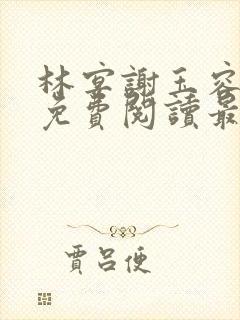 林宴謝玉容
免費閱讀最
賈呂便